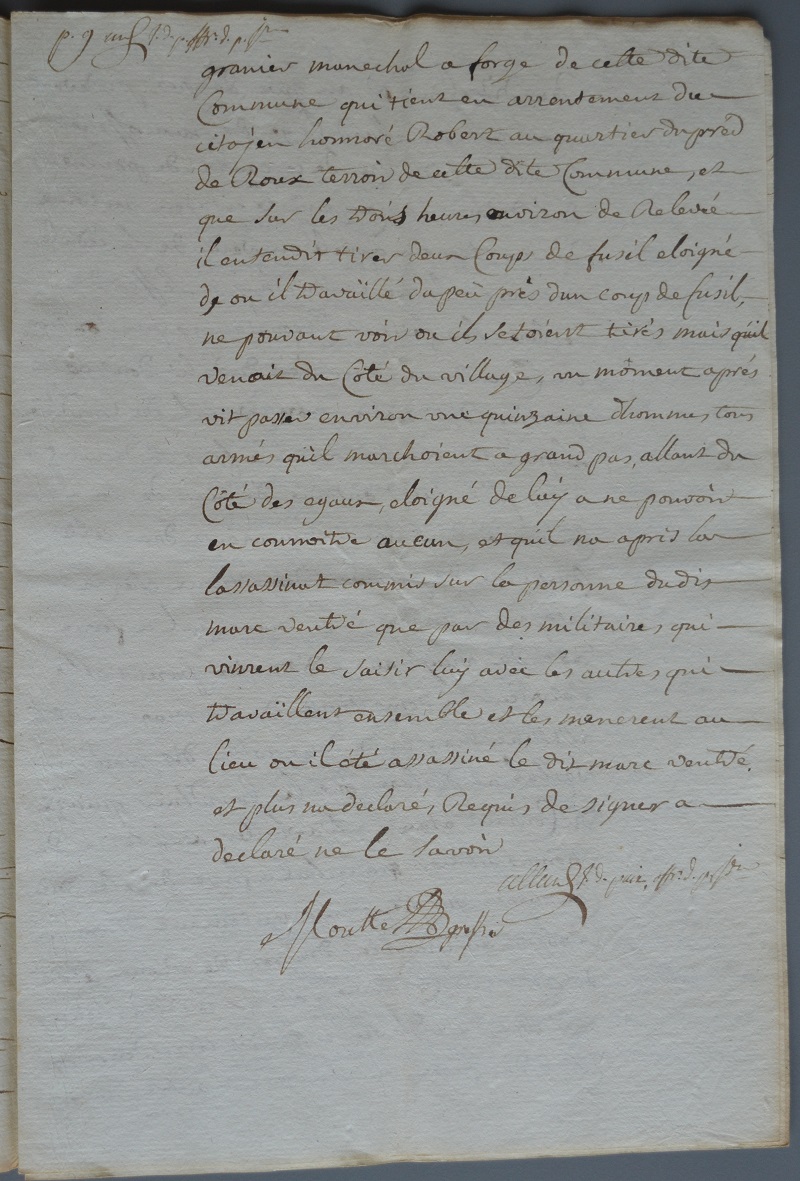 granier marechal a forge de cette dite
Commune qui tient en arrentement du
citoyen honnoré Robert au quartier du préd
de Roux terroir de cette dite Commune, et
que sur les trois heures environ de Relevée
il entendit tirer deux Coups de fusil eloigné
de ou il travaillé du peu près dun coup de fusil,
ne pouvant voir ou ils setoient tirés mais quil
venait du Côté du village, un môment après
vit passer environ une quinzaine d'hommes tous
armés quil marchoient a grand pas, allant du
Côté des egaux, eloigné de luÿ a ne pouvoir
en connoitre aucun, et quil na apris
lassassinat commis sur la personne du dit
marc ventré que par des militaires qui
vinrent le saisir luÿ avec les autres qui
travaillent ensemble et les menerent au
lieu ou il été assassiné le dit marc ventré,
et plus na declarés, Requis de signer a
declaré ne le savoir
allard j. d. paix, offr. d.
greffier